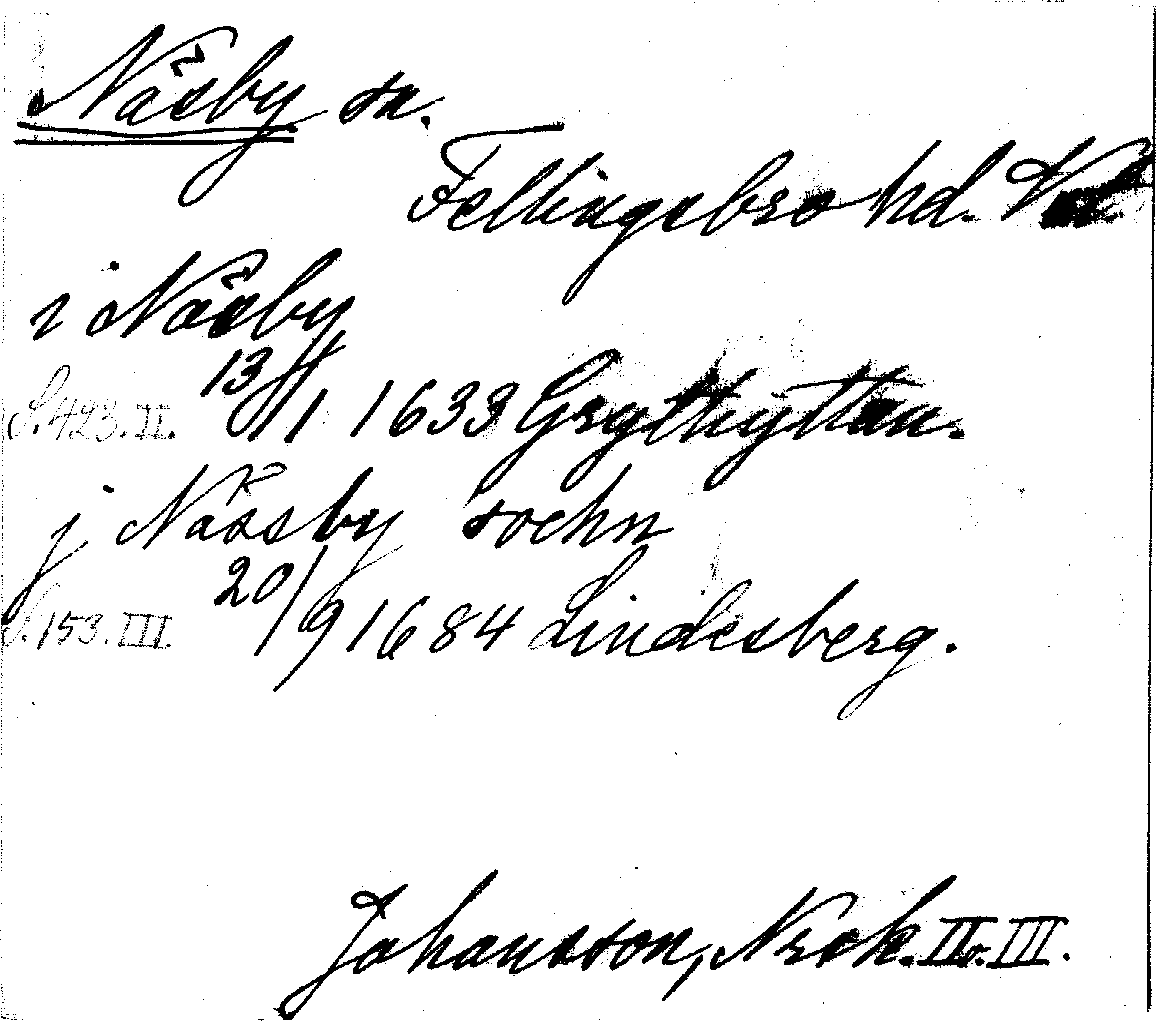 Näsby sn.
Fellingsbro hd.
i Näsby
S. 423. II. 13/11 1633 Grythyttan.
j Nässby sochn
S. 153. III. 20/9 1684 Lindesberg.
Johansson, Nrok. II o. III.